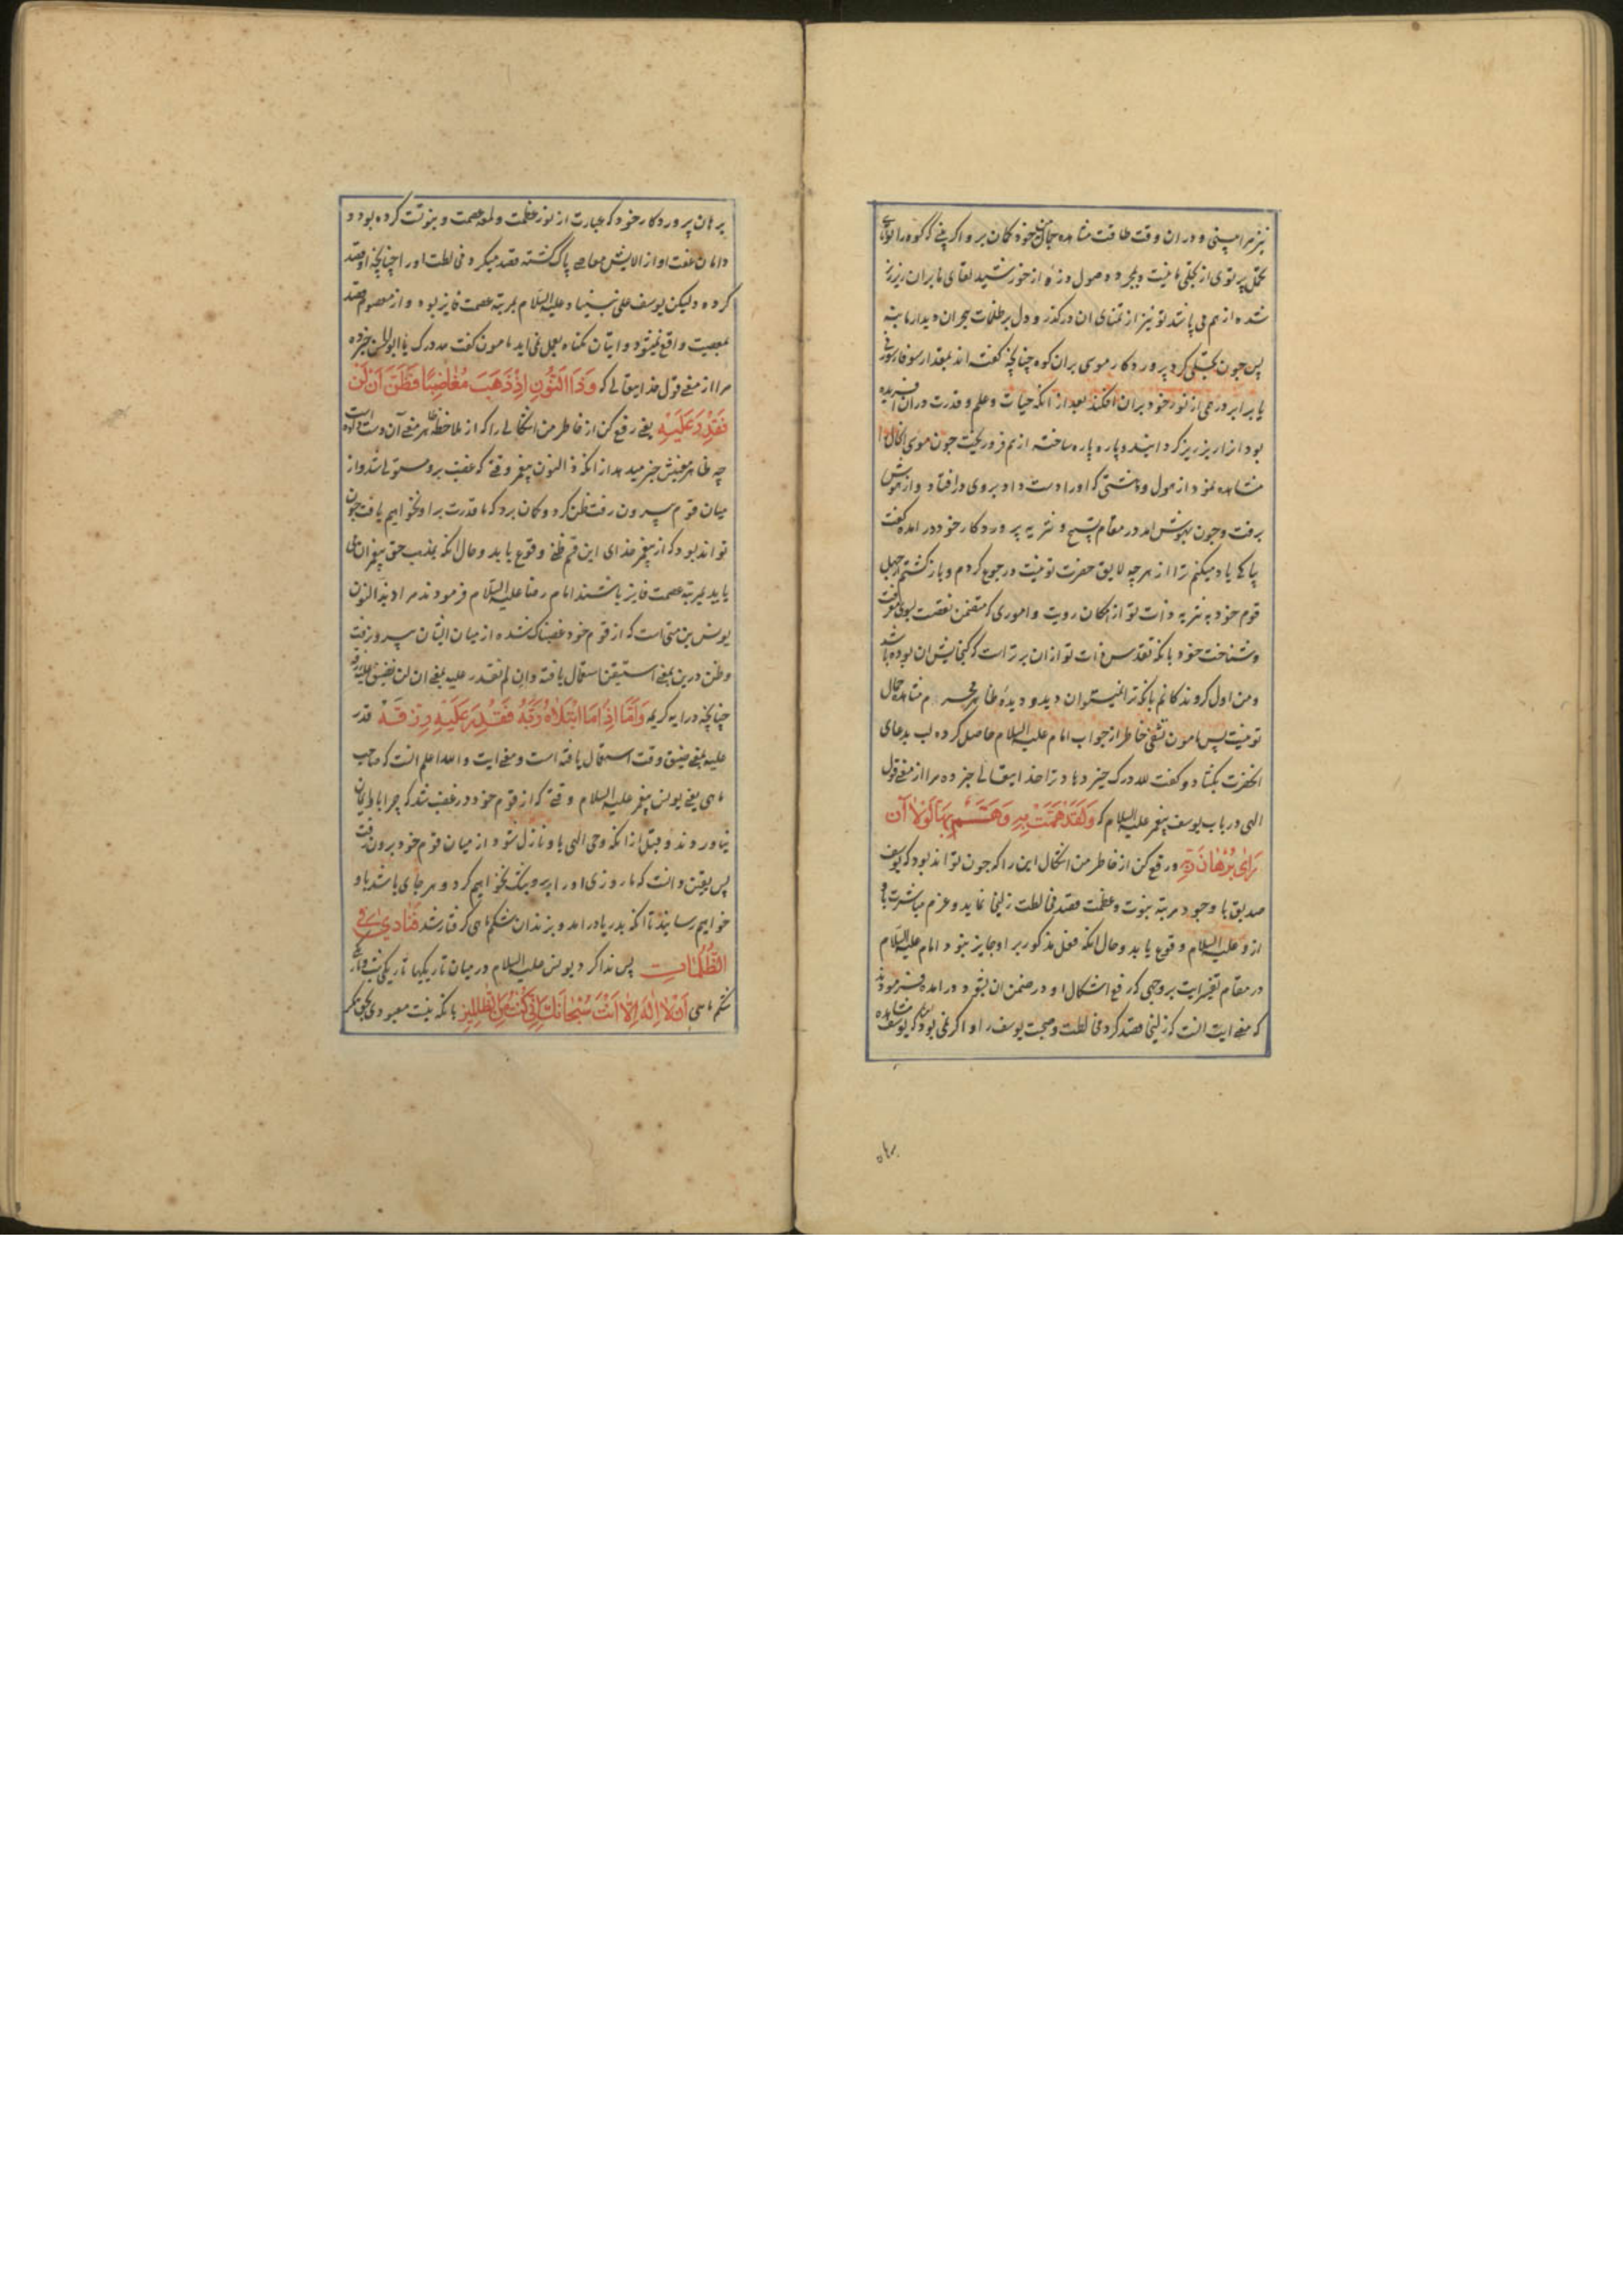 نیز مرا بینی و در ان وقت طاقت مشاهده جمال خود کمان بر و اکر بینی که کوه را توانایی
تحمل پرتوی از تجلی ما نیست و بمجرد وصول ذره از خورشید لقای ما بران ریز ریز
شده از هم می پاشد تو نیز از تمنای ان درکذر و دل بر ظلمات هجران دیدار ما بنه
پس جون تجلی کرد پروردکار موسی بران کوه چنانچه کفته اند بمقدار سوفار سوزنی
یا برابر درمی از نور خود بران افکند بعد از انکه حیات و علم و قدرت دران افریده
بود انرا ریز ریز کردانید و پاره پاره ساخته از هم فرو ریخت جون موسی انحال را
مشاهده نمود از هول و دهشتی که او را دست داد بروی درافتاد و از هوش
برفت و جون بهوش امد در مقام تسبیح و تنزیه پروردکار خود در امده کفت
بپاکی یاد میکنم ترا از هر چه لایق حضرت تو نیست و رجوع کردم و بازکشتم از جهل
قوم خود به تنزیه ذات تو از امکان رویت و اموری که متضمن نقصت بسوی معرفت
و شناخت خود بانکه تقدس ذات تو ازان برتر است که کنجایش ان بوده باشد
و من اول کروندکانم بانکه ترا نمیتوان دید و دیده ظاهر محرم مشاهده جمال
تو نیست پس مامون تشفی خاطر از جواب امام علیه السلام حاصل کرده لب بدعای
انحضرت بکشاد و کفت لله درک خبر ده مرا از معنی قول
الهی در باب یوسف پیغمبر علیه السلام که وَلَقَدْ هَمَّتْ بِهِ وَهَمَّ بِهَا لَوْلَا أَنْ
رَأَى بُرْهَانَ رَبِّهِ و رفع کن از خاطر من اشکال این را که جون تواند بود که یوسف
صدیق با وجود مرتبه نبوت و عظمت قصد مخالطت زلیخا نماید و عزم مباشرت با او
ازو علیه السلام وقوع یابد و حال انکه فعل مذکور بر او جایز نبود امام علیه السلام
در مقام تفسیر ایت بر وجهی که رفع اشکال او در ضمن ان بشود در امده فرمودند
که معنی ایت انست که زلیخا قصد کرد مخالطت و صحبت یوسف را و اکر نمی بود که یوسف مشاهده
برهان
برهان پروردکار خود که عبارت از نور عظمت و لمعه عصمت و نبوتست کرده بود و
دامان عفت او از الایش معاصی پاک کشته قصد میکرد مخالطت او را چنانچه او قصد
کرده ولیکن یوسف علی نبینا و علیه السلام بمرتبه عصمت فایز بوده و از معصوم قصد
بمعصیت واقع نمیشود و اتیان بکناه بعمل نمی اید مامون کفت لله درک یا ابوالحسن خبر ده
مرا از معنی قول خدایتعالی که وَذَا النُّونِ إِذْ ذَهَبَ مُغَاضِبًا فَظَنَّ أَنْ لَنْ
نَقْدِرَ عَلَيْهِ یعنی رفع کن از خاطر من اشکالی را که از ملاحظه ظاهر معنی آن دست داده است
چه ظاهر معنیش خبر میدهد از انکه ذا النون پیغمبر وقتی که غضب برو مستولی شد و از
میان قوم بیرون رفت ظن کرد و کمان برد که ما قدرت بر او نخواهیم یافت جون
تواند بود که از پیغمبر خدای این قسم ظنی وقوع یابد و حال انکه بمذهب حق پیغمبران می
باید بمرتبه عصمت فایز باشند امام رضا علیه السلام فرمودند مراد بذا النون
یونس بن متی است که از قوم خود غضبناک شده از میان ایشان بیرون رفت
و ظن درین بمعنی استیقن استعمال یافته و ان لم نقدر علیه بمعنی ان لن نضیق علیه رزقه
چنانچه در ایه کریمه وَأَمَّا إِذَا مَا ابْتَلَاهُ رَبُّهُ فَقَدَرَ عَلَيْهِ رِزْقَهُ قدر
علیه بمعنی ضیق وقت استعمال یافته است و معنی ایت و الله اعلم انست که صاحب
ماهی یعنی یونس پیغمبر علیه السلام وقتی که از قوم خود در غضب شد که چرا با او ایمان
نیاوردند و قبل از انکه وحی الهی باو نازل شود از میان قوم خود برون رفت
پس بیقین دانست که ما روزی او را برو تنک نخواهیم کرد و هر جای باشد باو
خواهیم رسانید تا انکه بدریا در امد و بزندان شکم ماهی کرفتار شد فَنَادَى فِي
الظُّلُمَاتِ پس ندا کرد یونس علیه السلام در میان تاریکیها تاریکی شب و تاریکی
شکم ماهی أَنْ لَا إِلَهَ إِلَّا أَنْتَ سُبْحَانَكَ إِنِّي كُنْتُ مِنَ الظَّالِمِينَ بانکه نیست معبودی بحق مکر